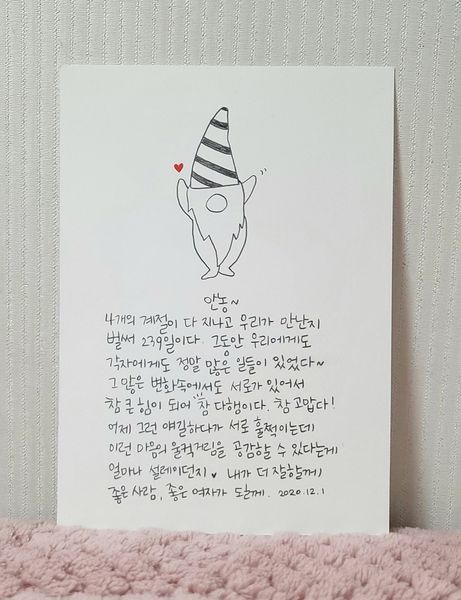 안농~
4개의 계절이 다 지나고 우리가 만난지
벌써 239일이다. 그동안 우리에게도
각자에게도 정말 많은 일들이 있었다~
그 많은 변화속에서도 서로가 있어서
참 큰 힘이 되어 참 다행이다. 참 고맙다!
어제 그런 얘길하다가 서로 훌쩍이는데
이런 마음의 울컥거림을 공감할 수 있다는게
얼마나 설레이던지 ♥ 내가 더 잘할께!
좋은 사람, 좋은 여자가 도ㅣ할께. 2020.12.1